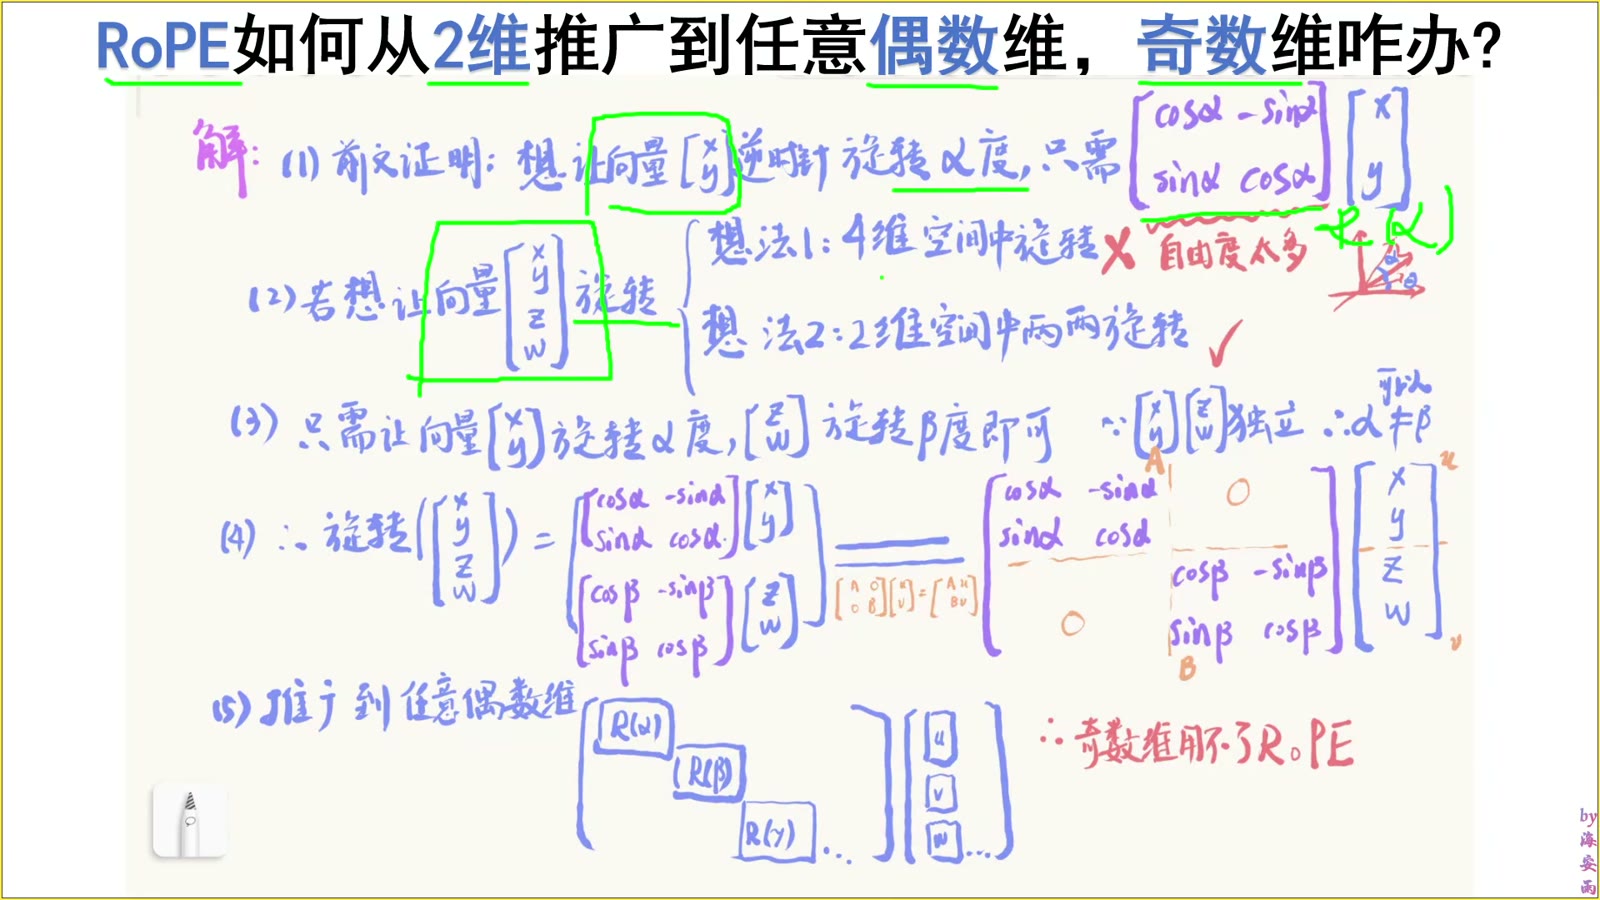 RoPE如何从2维推广到任意偶数维，奇数维咋办?
解: (1) 前文证明: 想让向量[x y]逆时针旋转α度,只需 [cosα -sinα sinα cosα] [x y]
R(α)
(2) 若想让向量[x y z w]旋转
想法1: 4维空间中旋转 X 自由度太多
想法2: 2维空间中两两旋转 ✓
(3) 只需让向量[x y]旋转α度, [z w]旋转β度即可 ∵[x y][z w]独立 ∴α可以≠β
(4) ∴ 旋转([x y z w]) = [[cosα -sinα sinα cosα][x y] [cosβ -sinβ sinβ cosβ][z w]]
[A 0 0 B][u v]=[Au Bv]
A
[cosα -sinα 0
sinα cosα
cosβ -sinβ
0 sinβ cosβ]
B
[x y z w] u v
(5) 推广到任意偶数维 [R(α) R(β) R(γ) ...] [u v w ...] ∴奇数维用不了RoPE
by海安雨